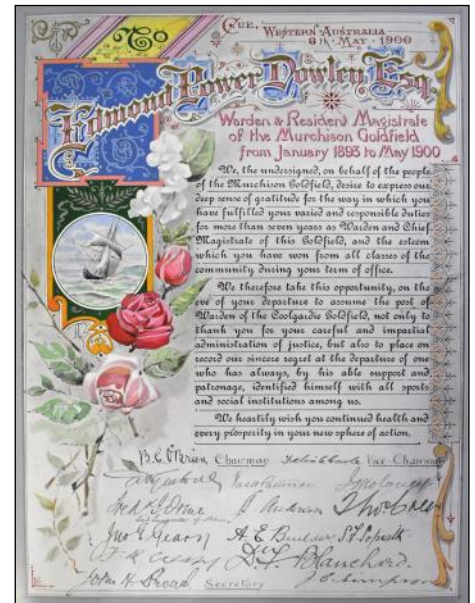 To
Cue, Western Australia
8th May 1900
Edmond Power Dowley Esq.
Warden & Resident Magistrate
of the Murchison Goldfield
from January 1893 to May 1900
We, the undersigned, on behalf of the people
of the Murchison Goldfield, desire to express our
deep sense of gratitude for the way in which you
have fulfilled your varied and responsible duties
for more than seven years as Warden and Chief
Magistrate of this Goldfield, and the esteem
which you have won from all classes of the
community during your term of office.
We therefore take this opportunity, on the
eve of your departure to assume the post of
Warden of the Coolgardie Goldfield, not only to
thank you for your careful and impartial
administration of justice, but also to place on
record our sincere regret at the departure of one
who has always, by his able support and
patronage, identified himself with all sports
and social institutions among us.
We heartily wish you continued health and
every prosperity in your new sphere of action.
B.C. O'Brien Chairman Vice-Chairman
Anderson
A. E.
Blanchard.
John H. Broad Secretary J. C. Simpson